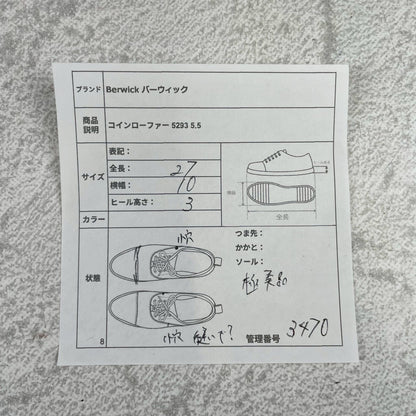 ブランド Berwick バーウィック
商品説明 コインローファー 5293 5.5
サイズ
表記：
全長： 27
横幅： 10
ヒール高さ： 3
ヒール高さ
横幅
全長
カラー
状態
小穴
つま先：
かかと：
ソール：
極美品
小穴 縫いで?
管理番号 3470
8